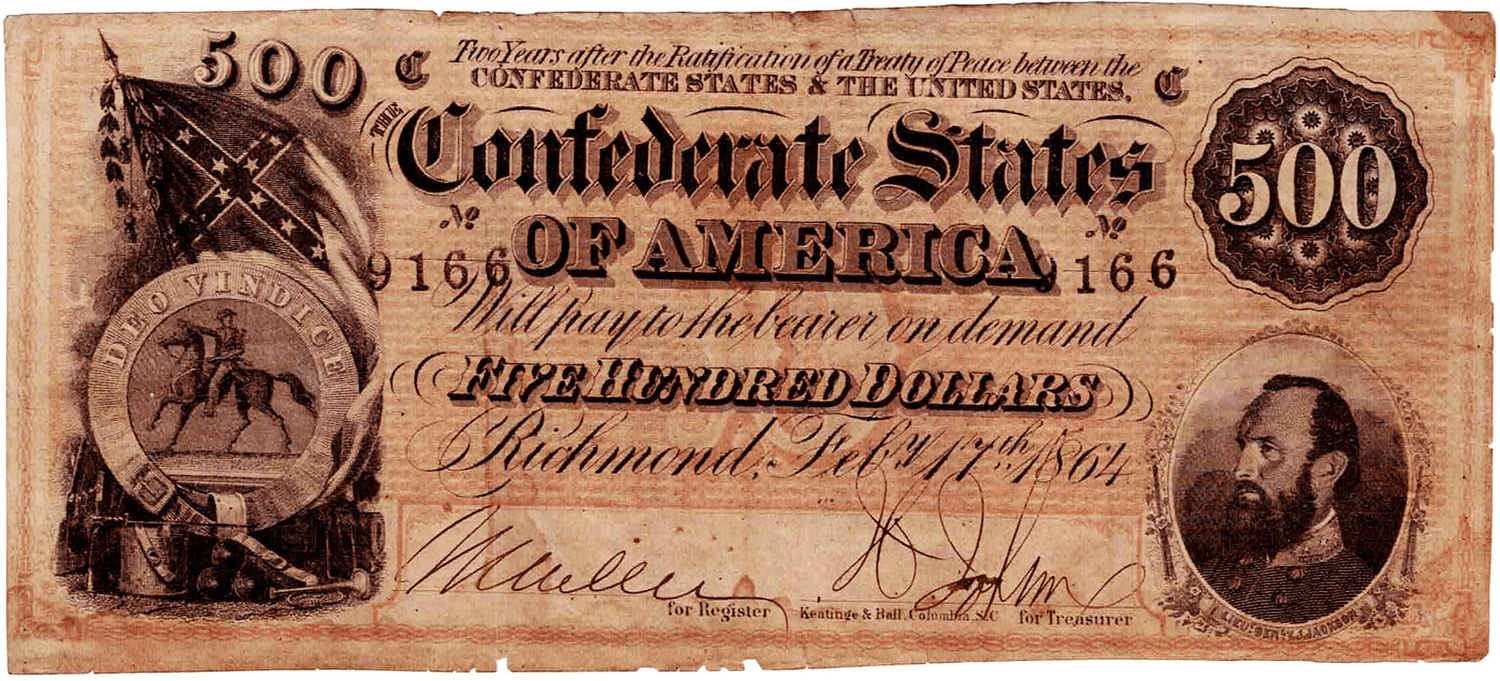 500
C Two Years after the Ratification of a Treaty of Peace between the C
CONFEDERATE STATES & THE UNITED STATES,
THE
Confederate States
500
OF AMERICA
No No
9166 166
DEO VINDICE
Will pay to the bearer on demand
FIVE HUNDRED DOLLARS
Richmond, Feby 17th 1864
for Register Keatinge & Ball, Columbia, S.C for Treasurer
LIEU: GEN: T.J. JACKSON